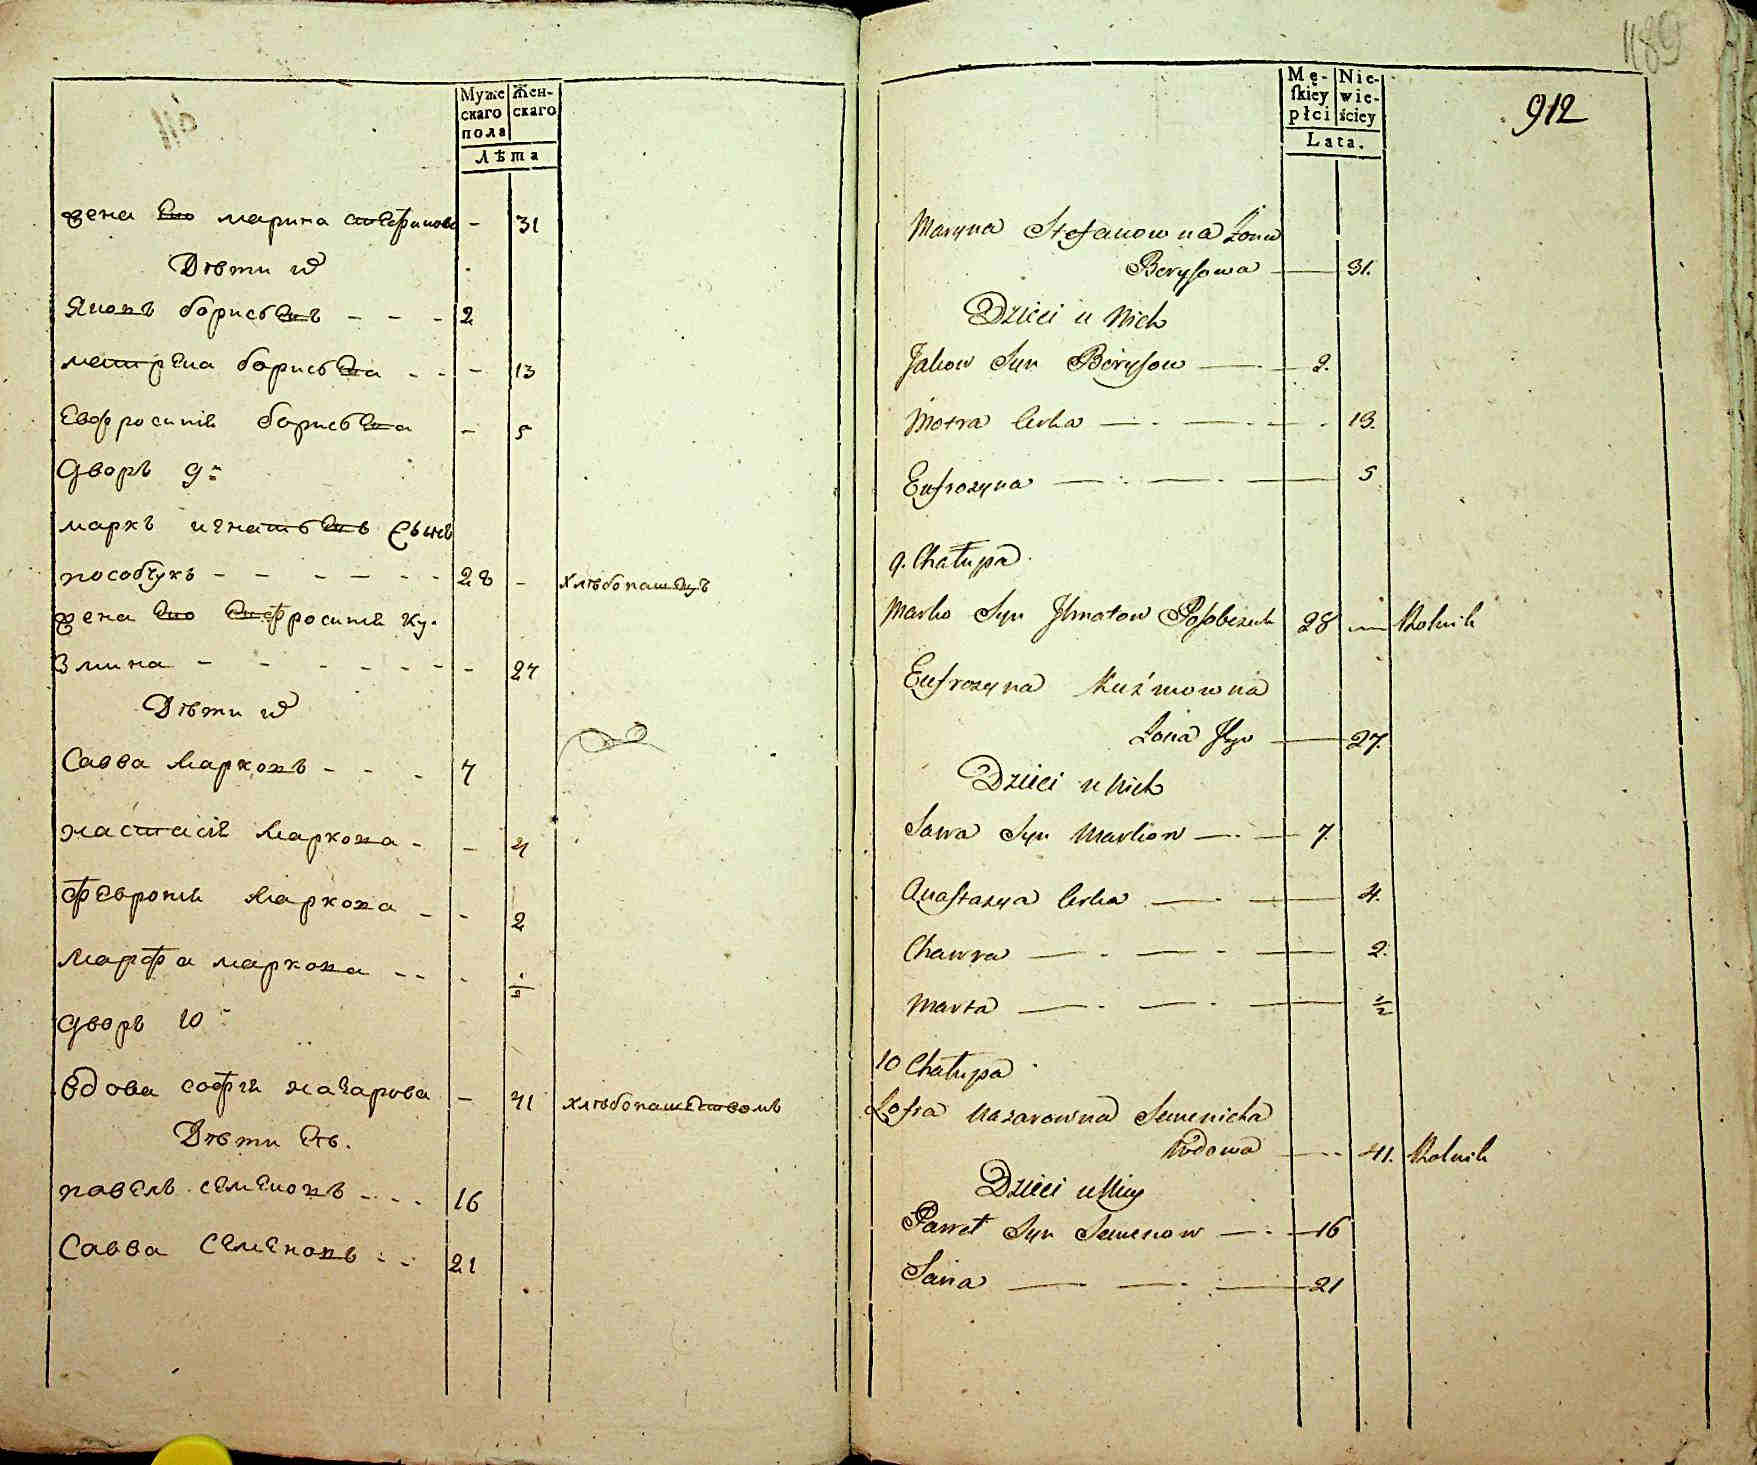 116
Муже
скаго
пола
Жен-
скаго
Лѣта
жена его марина стефанова - 31
Дѣти их
Яковъ борисовъ - - - 2
метрена борисова - - - 13
Евфросинія борисова - 5
Дворъ 9:
маркъ игнатьевъ сынъ
пособчукъ - - - - - - 28 - хлѣбопашецъ
жена его евфросинія ку-
змина - - - - - - - 27
Дѣти их
Савва Марковъ - - - 7
настасія Маркова - - 4
Февронія Маркова - - 2
Марфа маркова - - - 1/2
Дворъ 10:
вдова софія назарова - 41 хлѣбопашествомъ
Дѣти ее.
павелъ семеновъ - - - 16
Савва Семеновъ - - 21
1189
912
Mę-
skiey
płci
Nie-
wie-
ściey
Lata.
Maryna Stefanowna Żona
Berysowa — 31.
Dzieci u Nich
Jakow Syn Berysow — 2.
Motra Corka — 13.
Eufrozyna — 5
9. Chałupa
Marko Syn Ihnatow Posobczuk 28 — Rolnik
Eufrozyna Kuźmowna
Żona Jego — 27.
Dzieci u Nich
Sawa Syn Markow — 7.
Anastazya Corka — 4.
Chawra — 2.
Marta — 1/2
10 Chałupa
Zofia Nazarowna Semenicha
Wdowa — 41. Rolnik
Dzieci u Niey
Paweł Syn Semenow — 16
Sawa — 21